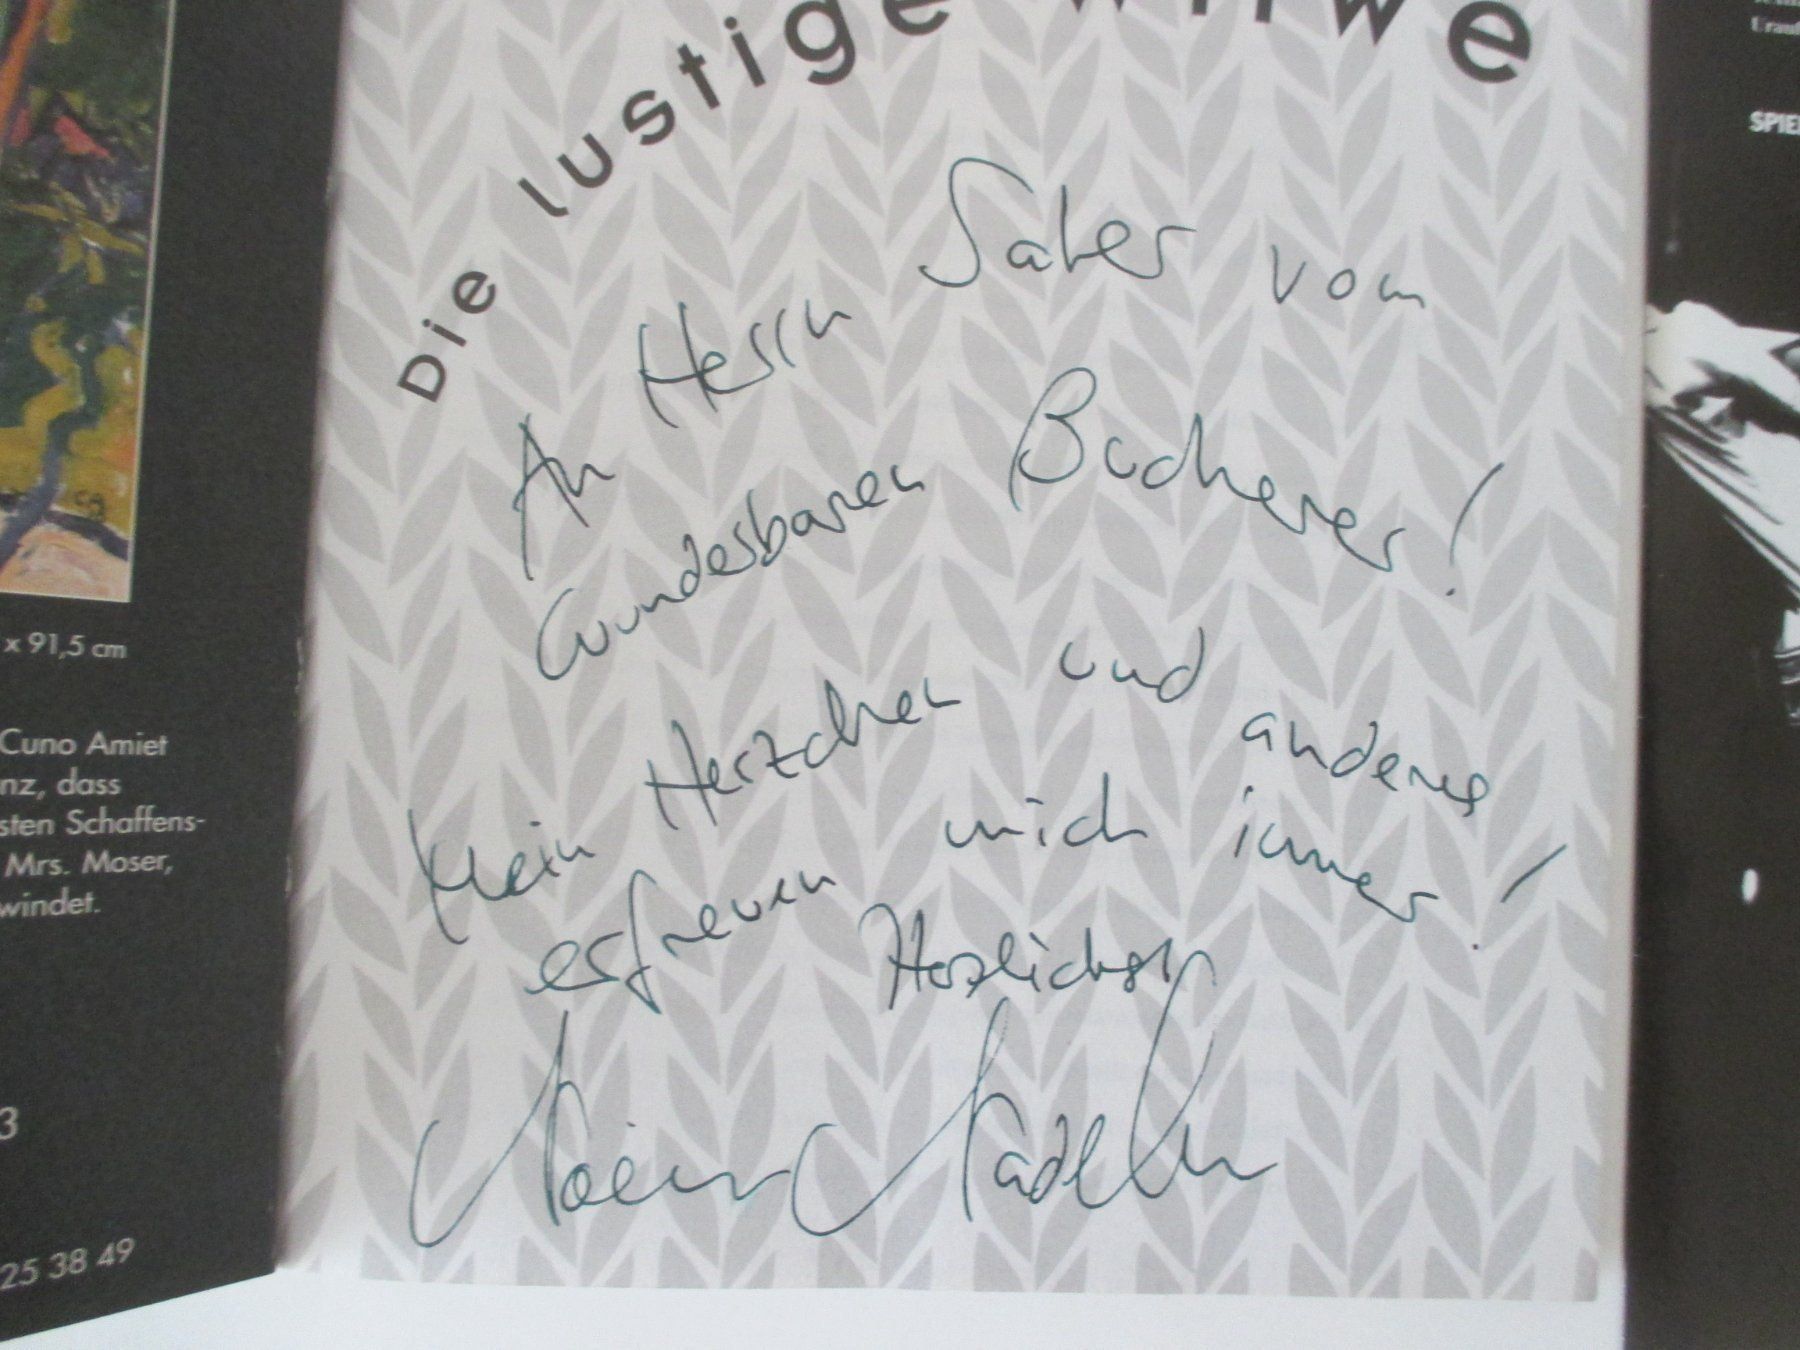 Die lustige Witwe
An Herrn Sater vom
wunderbaren Bucherer!
Mein Herzchen und anderes
erfreuen mich immer!
Herzlichst
Noëmi Nadelmann
x 91,5 cm
Cuno Amiet
nz, dass
sten Schaffens-
Mrs. Moser,
windet.
3
25 38 49
SPIE